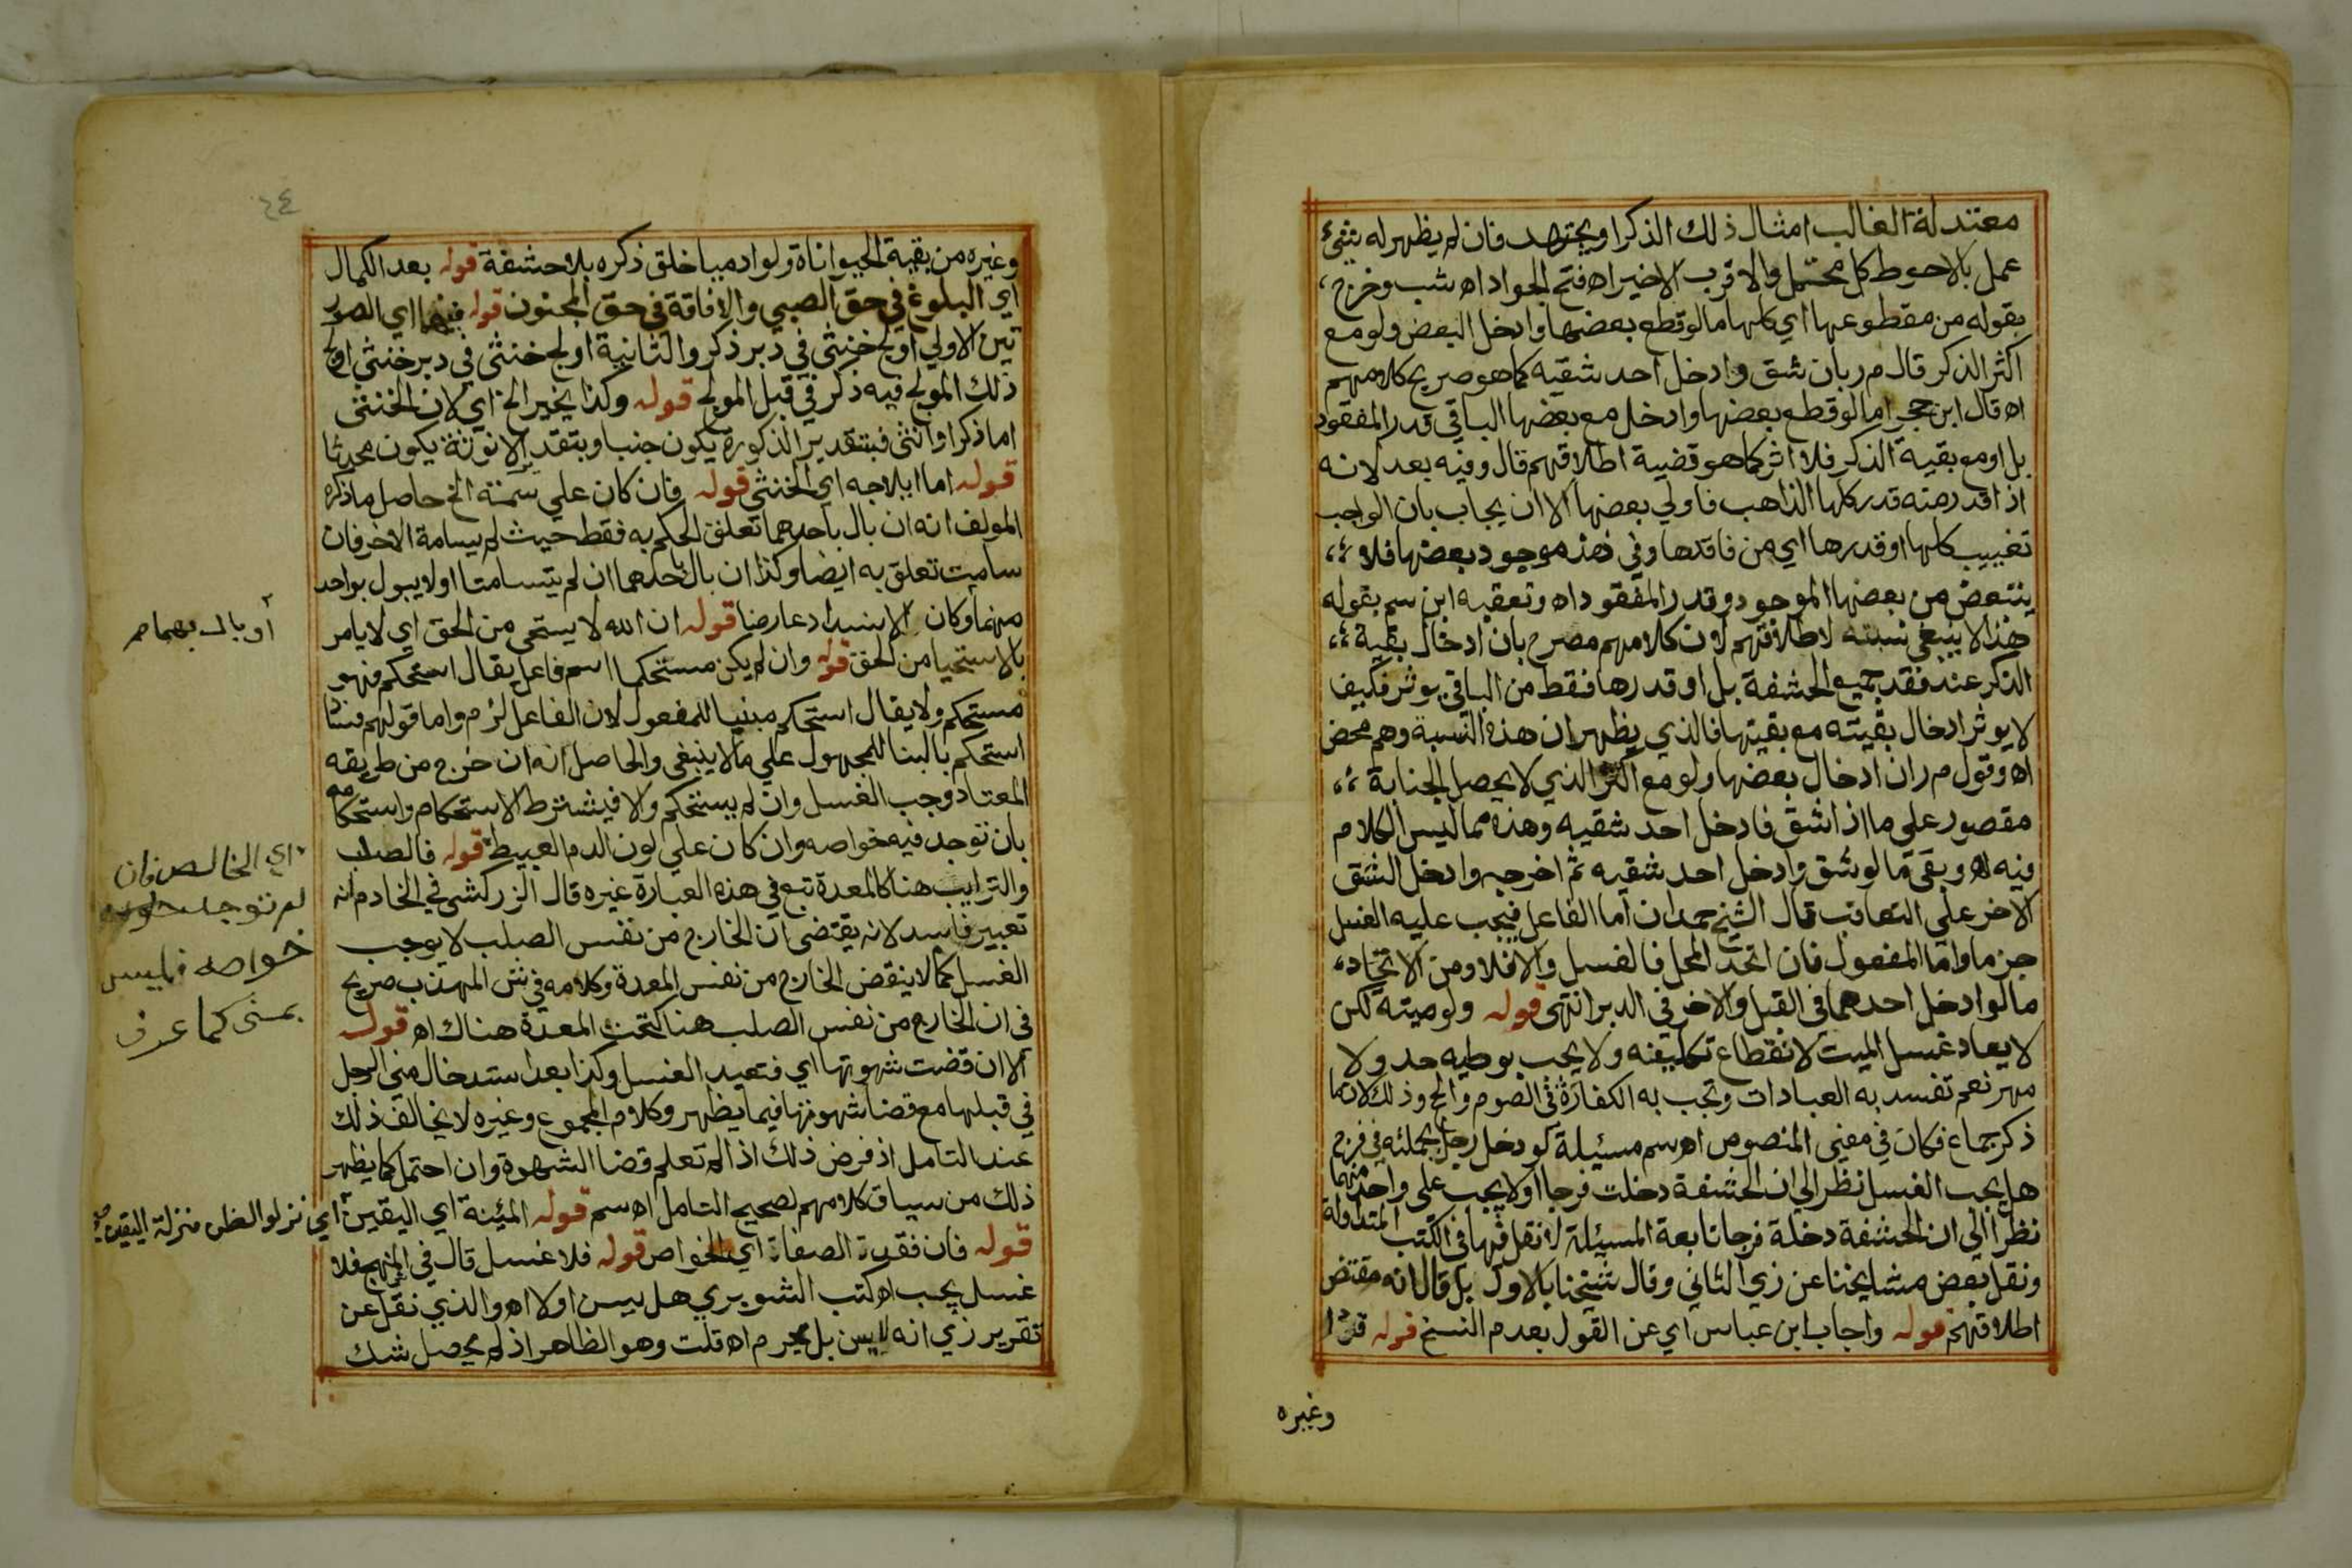 معتدلة الغالب امثال ذلك الذكر او يجتهد فان لم يظهر له شئ
عمل بالاحوط كل محتمل والاقرب الاخير اه فتح الجواد اه شب وخرج،
بقوله من مقطوعها اي كلها ما لو قطع بعضها وادخل البعض ولو مع
اكثر الذكر قال م ر بان شق وادخل احد شقيه كما هو صريح كلامهم
اه قال ابن حجر اما لو قطع بعضها وادخل مع بعضها الباقي قدر المفقود
بل او مع بقية الذكر فلا اثر كما هو قضية اطلاقهم قال وفيه بعد لانه
اذا قدر منه قدر كلها الذاهب فاولي بعضها الا ان يجاب بان الواجب
تغييب كلها او قدرها اي من فاقدها وفي هذه موجود بعضها فلا،
يتبعض من بعضها الموجود وقدر المفقود اه وتعقبه ابن سم بقوله
هذا لا ينبغي نسبته لاطلاقهم لان كلامهم مصرح بان ادخال بقية،
الذكر عند فقد جميع الحشفة بل او قدرها فقط من الباقي يوثر فكيف
لا يوثر ادخال بقيته مع بقيتها فالذي يظهر ان هذه النسبة وهم محض
اه وقول م ر ان ادخال بعضها ولو مع اكثر الذي لا يحصل الجنابة،
مقصور علي ما اذا شق فادخل احد شقيه وهذه مما ليس الكلام
فيه اه وبقي ما لو شق وادخل احد شقيه ثم اخرجه وادخل الشق
الاخر علي التعاقب قال الشيخ حمدان اما الفاعل فيجب عليه الغسل
جزما واما المفعول فان اتحد المحل فالغسل والا فلا ومن الاتحاد،
ما لو ادخل احدهما في القبل والاخر في الدبر انتهى قوله ولو ميته لكن
لا يعاد غسل الميت لانقطاع تكليفه ولا يجب بوطيه حد ولا
مهر نعم تفسد به العبادات وتجب به الكفارة في الصوم والحج وذلك لانها
ذكر جماع فكان في معني المنصوص اه سم مسئيلة لو دخل رجل بجملته في فرج
هل يجب الغسل نظر الي ان الحشفة دخلت فرجا او لا يجب علي واحد منهما
نظرا الي ان الحشفة دخلة فرجا تابعة المسئيلة لا نقل فيها في الكتب المتداولة
ونقل بعض مشايخنا عن زي الثاني وقال شيخنا بالاول بل قال انه مقتض
اطلاقهم قوله واجاب ابن عباس اي عن القول بعدم النسخ قوله قردا
وغيره
٢٤
وغيره من بقية الحيوانات ولو ادميا خلق ذكره بلا حشفة قوله بعد الكمال
اي البلوغ في حق الصبي والافاقة في حق المجنون قوله فيهما اي الصور
تين الاولي اولج خنثي في دبر ذكر والثانية اولج خنثي في دبر خنثي اولج
ذلك المولج فيه ذكر في قبل المولج قوله وكذا يخير الخ اي لان الخنثي
اما ذكر او انثي فبتقدير الذكورة يكون جنبا وبتقدير الانوثة يكون محدثا
قوله اما ايلاجه اي الخنثي قوله فان كان علي سمته الخ حاصل ما ذكره
المولف انه ان بال باحدهما تعلق الحكم به فقط حيث لم يسامة الاخر فان
سامت تعلق به ايضا وكذا ان بال باحدهما ان لم يتسامتا او لا يبول بواحد
منهما وكان الانسداد عارضا قوله ان الله لا يستحي من الحق اي لا يامر
أو بال بهما صح
بالاستحيا من الحق قوله وان لم يكن مستحكما اسم فاعل يقال استحكم فهو
مستحكم ولا يقال استحكم مبنيا للمفعول لان الفاعل لزم واما قولهم
استحكم بالبنا للمجهول علي ما لا ينبغي والحاصل انه ان خرج من طريقه
المعتاد وجب الغسل وان لم يستحكم والا فيشترط الاستحكام واستحكامه
بان توجد فيه خواصه وان كان علي لون الدم العبيط قوله فالصلب
اي الخالص فان
لم توجد
خواصه فليس
بمني كما عرف
والترايب هنا كالمعدة تبع في هذه العبارة غيره قال الزركشي في الخادم انه
تعبير فاسد لانه يقتضي ان الخارج من نفس الصلب لا يوجب
الغسل كما لا ينقض الخارج من نفس المعدة وكلامه في ش المهذب صريح
في ان الخارج من نفس الصلب هنا كتحت المعدة هناك اه قوله
الا ان قضت شهوتها اي فتعيد الغسل وكذا بعد استدخال مني الرجل
في قبلها مع قضا شهوتها فيما يظهر وكلام المجموع وغيره لا يخالف ذلك
عند التامل اذ فرض ذلك اذا لم تعلم قضا الشهوة وان احتمل كما يظهر
ذلك من سياق كلامهم لصحيح التامل اه سم قوله المئينة اي اليقين
اي نزلوا الظن منزلة اليقين صح
قوله فان فقدت الصفات اي الخواص قوله فلا غسل قال في المنهج فلا
غسل يجب اه كتب الشوبري هل يسن او لا اه والذي نقل عن
تقرير زي انه لا يسن بل يحرم اه قلت وهو الظاهر اذ لم يحصل شك